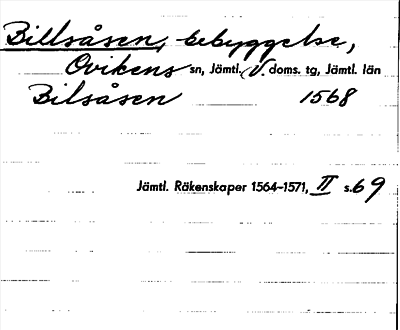 Billsåsen, bebyggelse,
Ovikens sn, Jämtl. V. doms. tg, Jämtl. län
Bilsåsen 1568
Jämtl. Räkenskaper 1564–1571, II s. 69